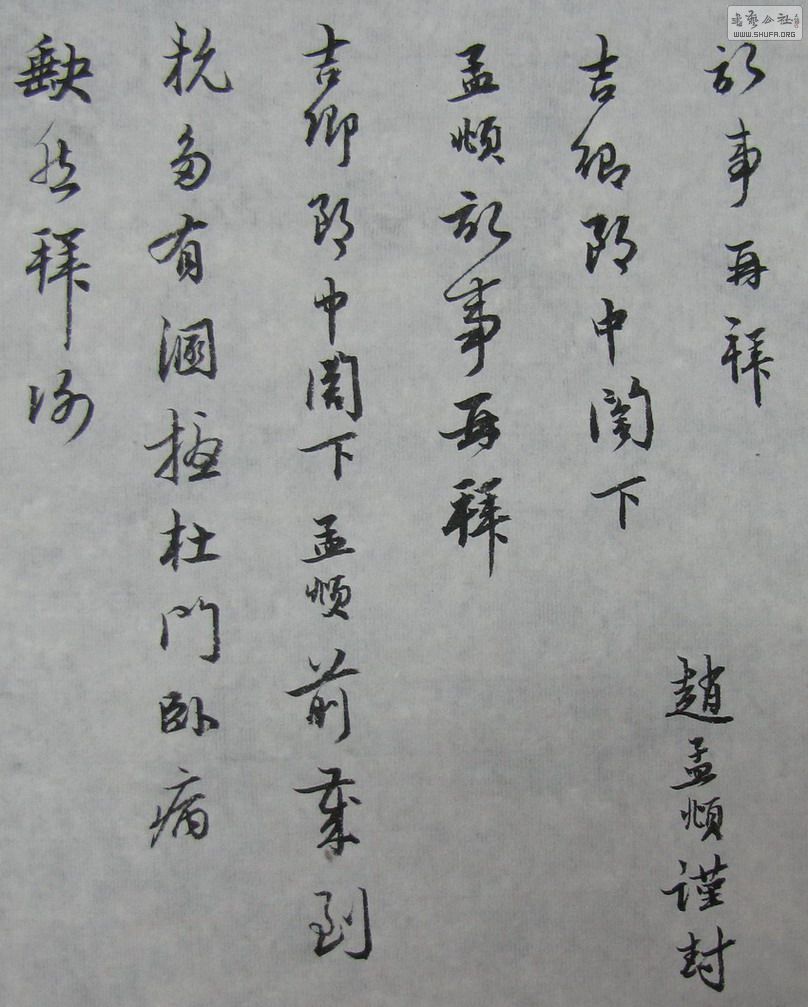 記事再拜
趙孟頫謹封
吉卿郎中閣下
孟頫記事再拜
吉卿郎中閣下孟頫前歲到
杭多有溷擾杜門臥病
缺然拜
書藝公社
WWW.SHUFA.ORG